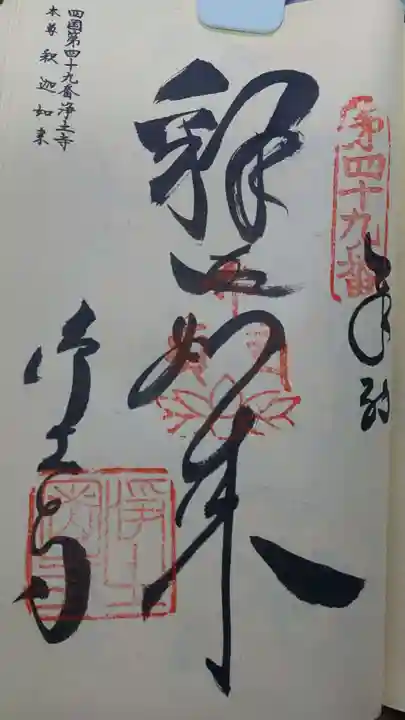 四国第四十九番浄土寺
本尊 釈迦如来
第四十九番
奉納
釈迦如来
浄土寺